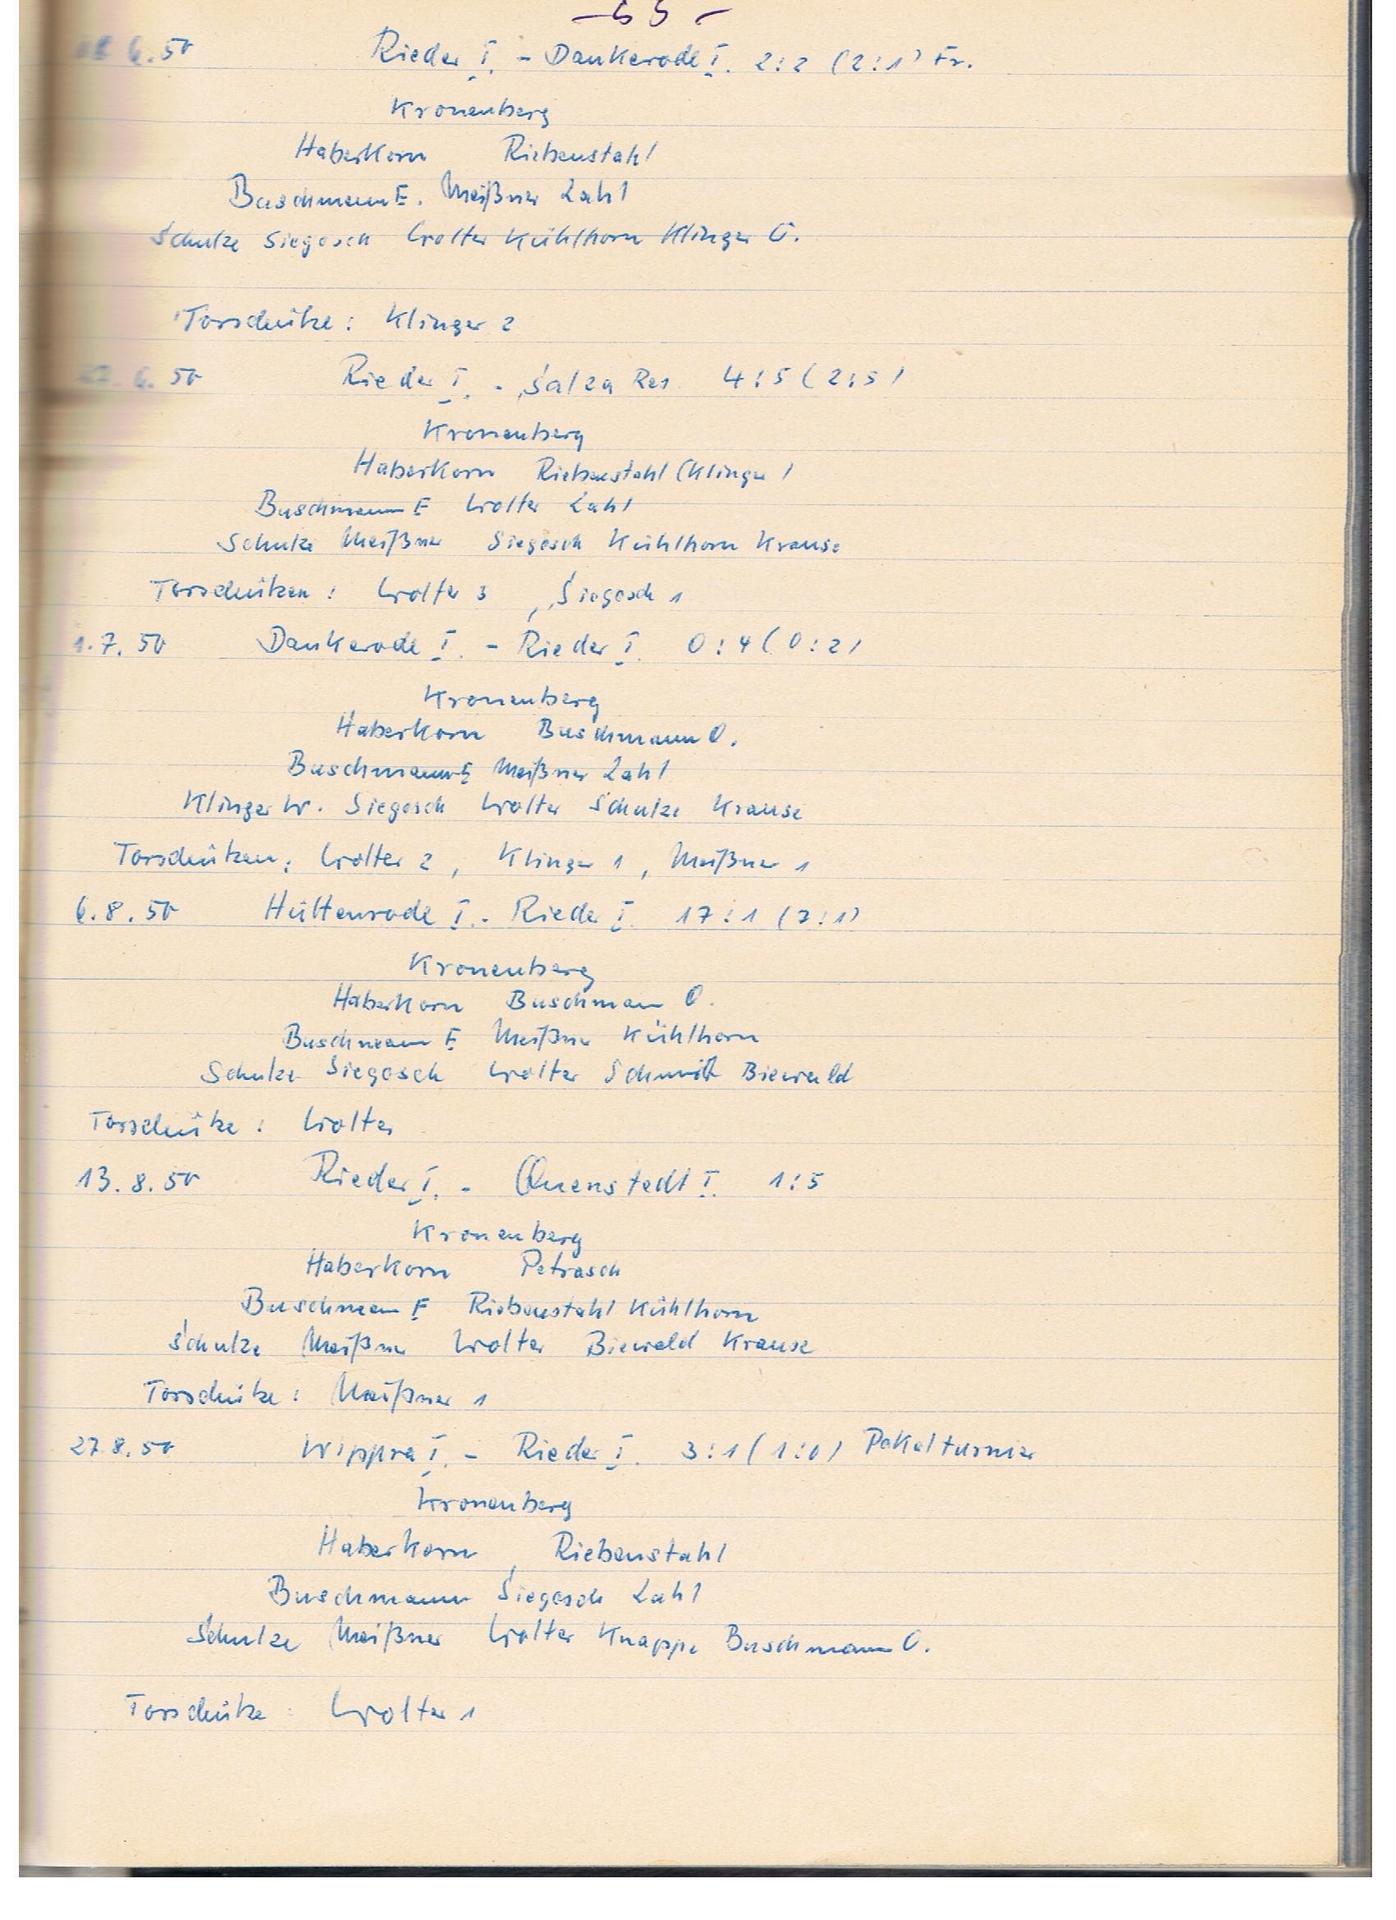 - 65 -
6.50 Rieder I. - Dankerode I. 2:2 (2:1) Fr.
Kronenberg
Haberkorn Riebenstahl
Buschmann E. Meißner Zahl
Schulze Siegosch Wolter Kühlhorn Klinger
Torschütze: Klinger 2
6.50 Rieder I. - Salza Res. 4:5 (2:5)
Kronenberg
Haberkorn Riebenstahl (Klinger)
Buschmann E Wolter Zahl
Schulze Meißner Siegosch Kühlhorn Krause
Torschützen: Wolter 3, Siegosch 1
1.7.50 Dankerode I. - Rieder I. 0:4 (0:2)
Kronenberg
Haberkorn Buschmann O.
Buschmann E Meißner Zahl
Klinger W. Siegosch Wolter Schulze Krause
Torschützen: Wolter 2, Klinger 1, Meißner 1
6.8.50 Hüttenrode I. - Rieder I. 17:1 (7:1)
Kronenberg
Haberkorn Buschmann O.
Buschmann E Meißner Kühlhorn
Schulze Siegosch Wolter Schmidt Biewald
Torschütze: Wolter
13.8.50 Rieder I. - Quenstedt I. 1:5
Kronenberg
Haberkorn Petrasch
Buschmann E Riebenstahl Kühlhorn
Schulze Meißner Wolter Biewald Krause
Torschütze: Meißner 1
27.8.50 Wippra I. - Rieder I. 3:1 (1:0) Pokalturnier
Kronenberg
Haberkorn Riebenstahl
Buschmann Siegosch Zahl
Schulze Meißner Wolter Knappe Buschmann O.
Torschütze: Wolter 1